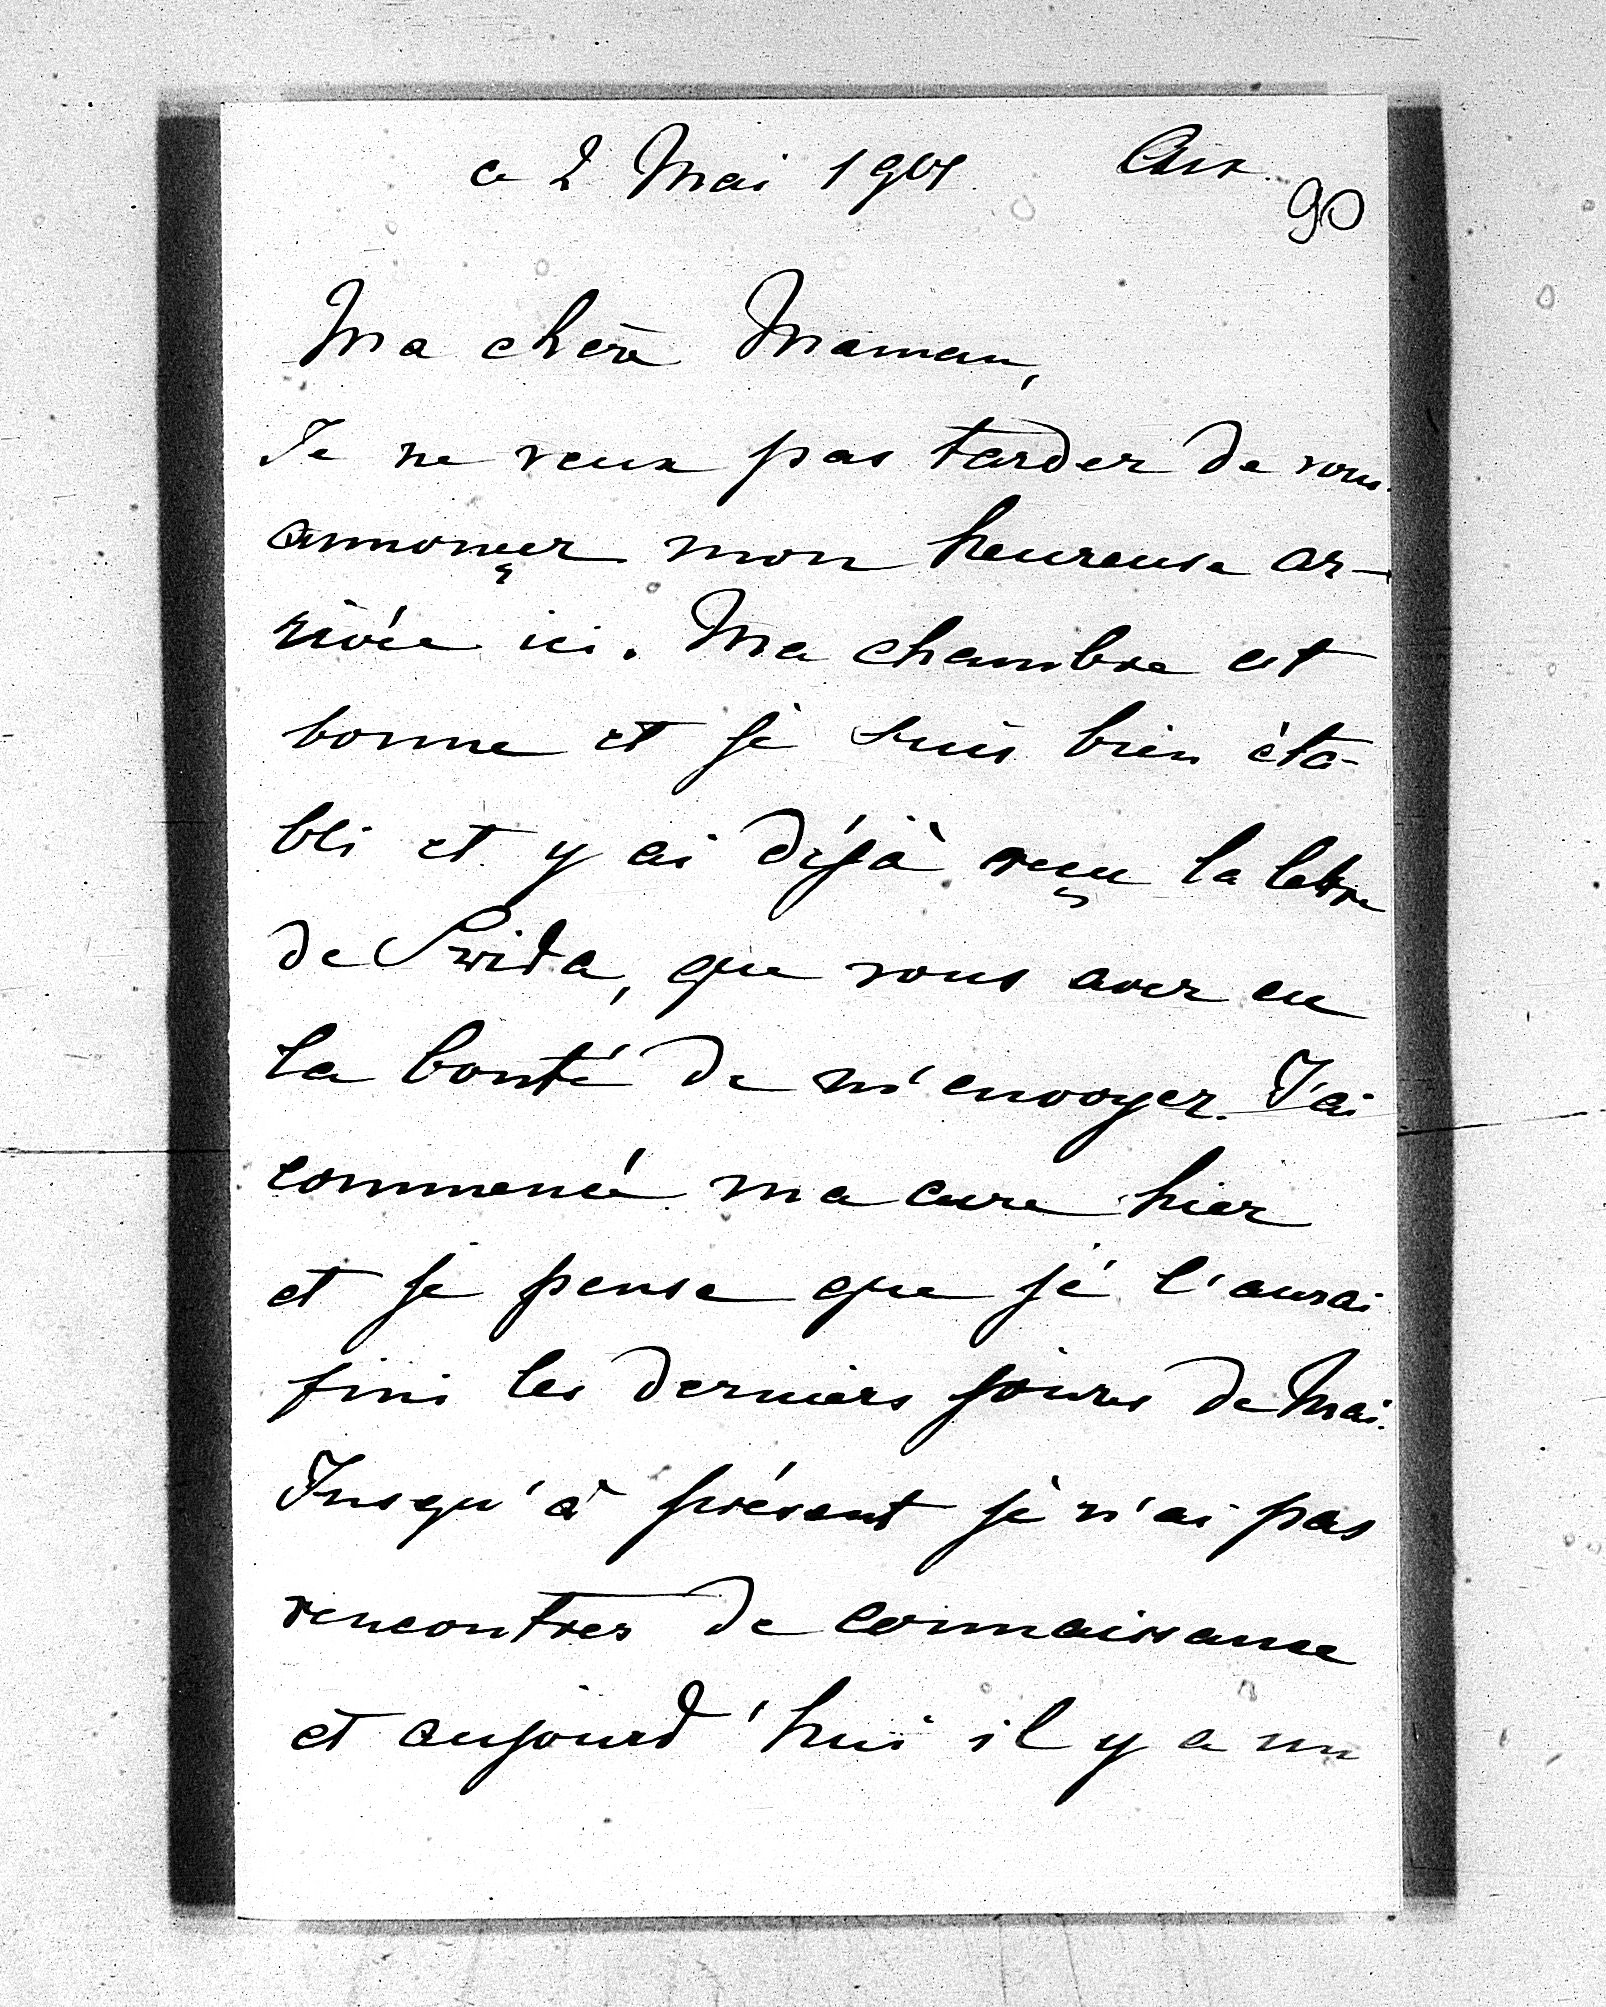 ce 2 Mai 1901 Aix
90
Ma chère Maman,
Je ne veux pas tarder de vous
annonçer mon heureuse ar-
rivée ici. Ma chambre est
bonne et je suis bien éta-
bli et y ai déjà reçu la lettre
de Swida, que vous avez eu
la bonté de m'envoyer. J'ai
commencé ma cure hier
et je pense que je l'aurai
fini les derniers jours de Mai.
Jusqu'à présent je n'ai pas
rencontres de connaissance
et aujourd'hui il y a un